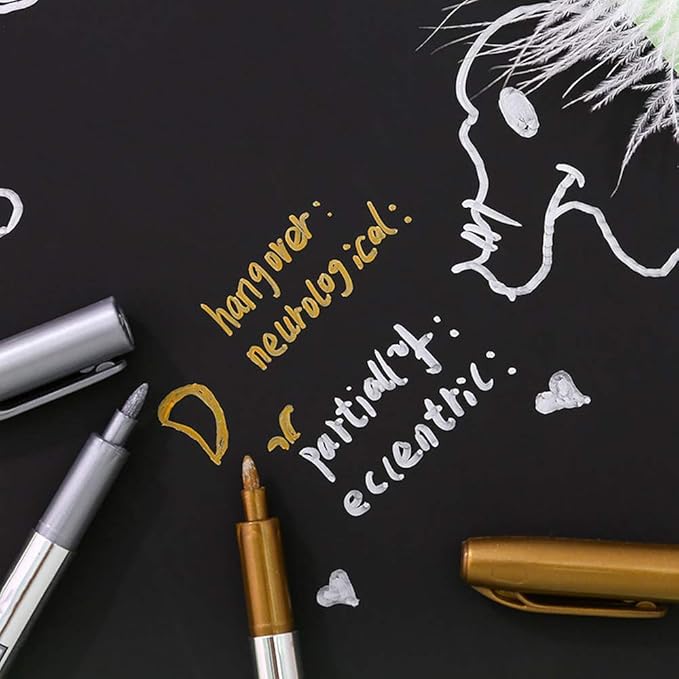 hangover:
neurological:
partially:
eclentric: